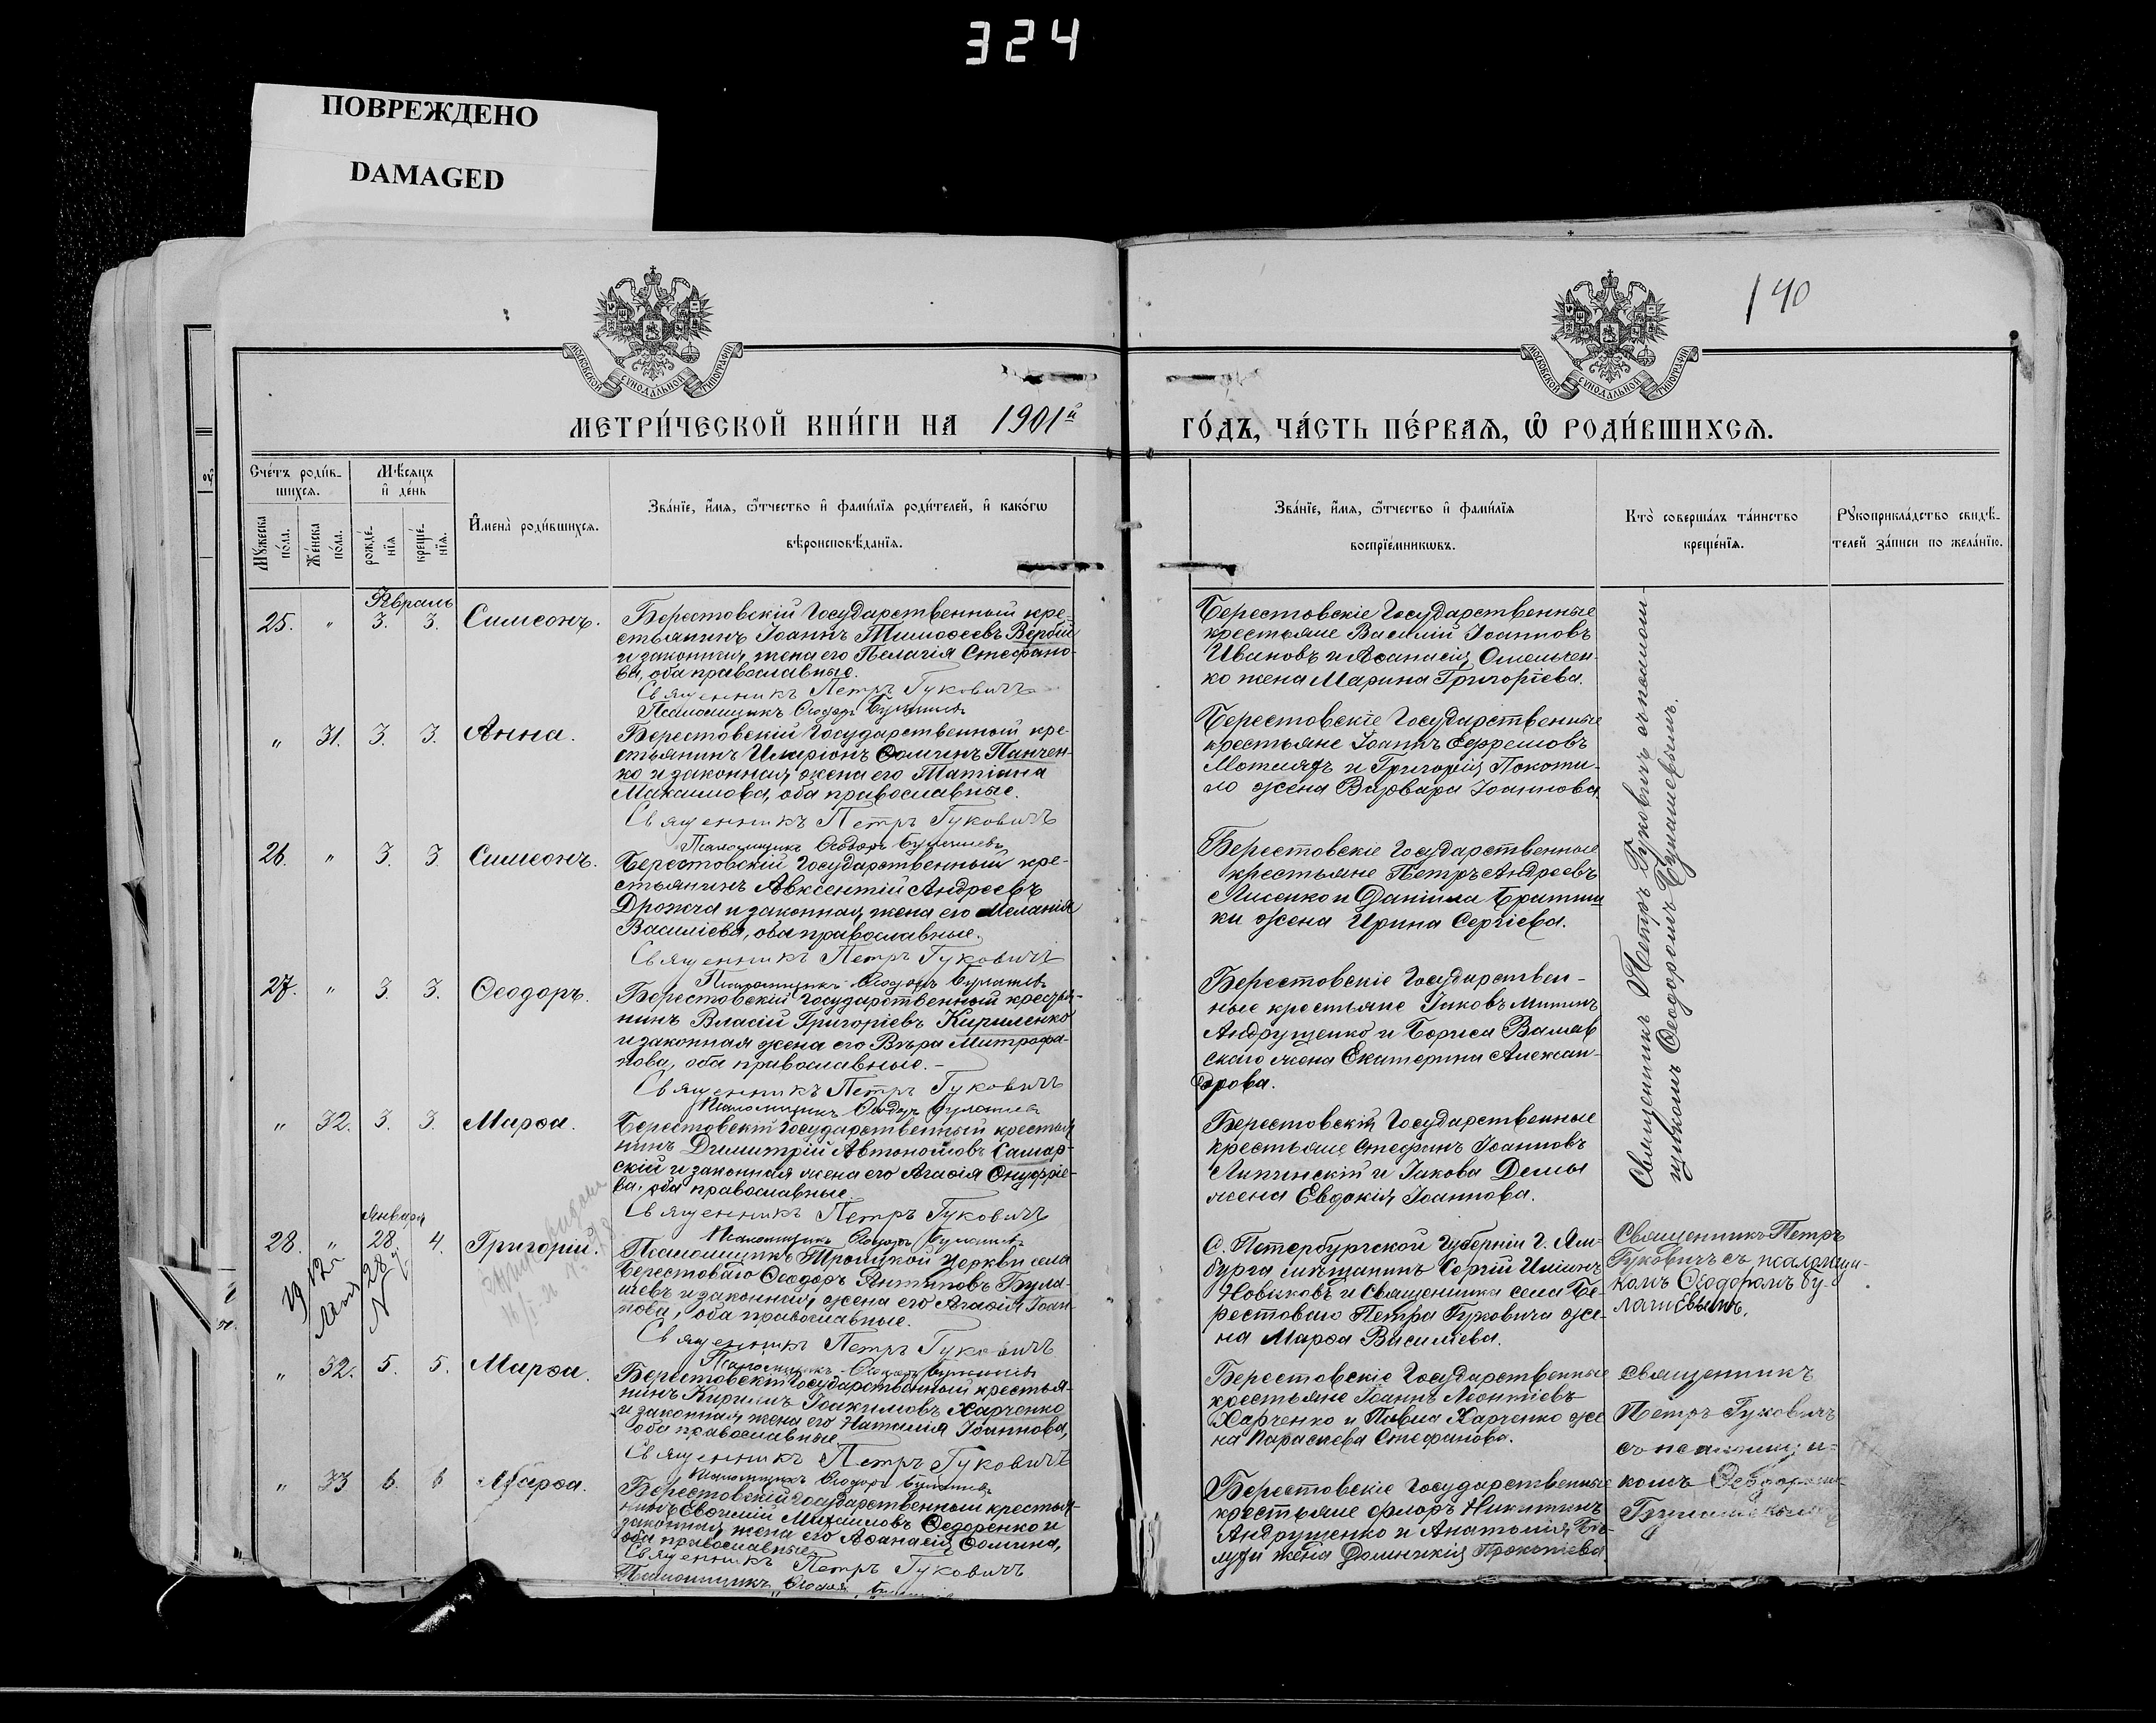 324
ПОВРЕЖДЕНО
DAMAGED
140
МОСКОВСКОЙ СѴНОДАЛЬНОЙ ТИПОГРАФІИ
МОСКОВСКОЙ СѴНОДАЛЬНОЙ ТИПОГРАФІИ
МЕТРИ́ЧЕСКОЙ КНИ́ГИ НА 1901й
ГО́ДЪ, ЧА́СТЬ ПЕ́РВАѦ, Ѡ҆ РОДИ́ВШИХСѦ.
Сче́тъ роди́в-
шихсѧ.
Мꙋ́жеска по́ла.
Же́нска по́ла.
Мѣ́сѧцъ и҆ де́нь
рожде́-нїѧ
креще́-нїѧ.
И҆мена̀ роди́вшихсѧ.
Зва́нїе, и҆́мѧ, ѻ҆́тчество и҆ фами́лїѧ роди́телей, и҆ како́гѡ
вѣроисповѣ́данїѧ.
Зва́нїе, и҆́мѧ, ѻ҆́тчество и҆ фами́лїѧ
воспрїе́мникѡвъ.
Кто̀ соверша́лъ та́инство
креще́нїѧ.
Рꙋкоприкла́дство свидѣ́-
телей за́писи по жела́нїю.
Февраль
25. " 3. 3. Симеонъ.
Берестовскій Государственный кре-
стьянинъ Іоаннъ Тимоѳеевъ Вербій
и законная жена его Пелагія Стефано-
ва, оба православные.
Священникъ Петръ Гуковичъ
Псаломщикъ Ѳеодоръ Булашевъ
Берестовскіе Государственные
крестьяне Василій Іоанновъ
Ивановъ и Аѳанасія Омельчен-
ко жена Марина Григоріева.
Священникъ Петръ Гуковичъ съ псалом-
щикомъ Ѳеодоромъ Булашевымъ.
" 31. 3. 3. Анна.
Берестовскій Государственный кре-
стьянинъ Иларіонъ Ѳоминъ Панчен-
ко и законная жена его Татіана
Максимова, оба православные.
Священникъ Петръ Гуковичъ
Псаломщикъ Ѳеодоръ Булашевъ
Берестовскіе Государственные
крестьяне Іоаннъ Ефремовъ
и Григорія Покоти-
ло жена Варвара Іоаннова.
26. " 3. 3. Симеонъ.
Берестовскій Государственный кре-
стьянинъ Авксентій Андреевъ
Дрожча и законная жена его Меланія
Василіева, оба православные.
Священникъ Петръ Гуковичъ
Псаломщикъ Ѳеодоръ Булашевъ
Берестовскіе Государственные
крестьяне Петръ Андреевъ
Лисенко и Даніила Братиш
ки жена Ирина Сергіева.
27. " 3. 3. Ѳеодоръ.
Берестовскій Государственный крестья-
нинъ Власій Григоріевъ Кириленко
и законная жена его Вѣра Митрофа-
нова, оба православные.-
Священникъ Петръ Гуковичъ
Псаломщикъ Ѳеодоръ Булашевъ
Берестовскіе Государствен-
ные крестьяне Іаковъ
Андрущенко и Бориса
скаго жена Екатерина Алексан-
дрова.
" 32. 3. 3. Марѳа.
Берестовскій Государственный крестья
нинъ Димитрій Автономовъ Самар-
скій и законная жена его Агафія Онуфріе-
ва, оба православные.
Священникъ Петръ Гуковичъ
Псаломщикъ Ѳеодоръ Булашевъ
Берестовскіе Государственные
крестьяне Стефанъ Іоанновъ
Липинскій и Іакова Демы
жена Евдокія Іоаннова.
Января
28. " 28. 4. Григорій.
Псаломщикъ Троицкой церкви села
Берестоваго Ѳеодоръ Антиповъ Була-
шевъ и законная жена его Агафія Іоан-
нова, оба православные.
Священникъ Петръ Гуковичъ
Псаломщикъ Ѳеодоръ Булашевъ
С. Петербургской Губерніи г. Ям-
бурга мѣщанинъ Сергій Ильинъ
Новиковъ и Священника села Бе-
рестоваго Петра Гуковича же-
на Марѳа Василіева.
Священникъ Петръ
Гуковичъ съ псаломщи-
комъ Ѳеодоромъ Бу-
лашевымъ.
" 32. 5. 5. Марѳа.
Берестовскій Государственный крестья-
нинъ Кириллъ Іоакимовъ Харченко
и законная жена его Наталія Іоаннова,
оба православные
Священникъ Петръ Гуковичъ
Псаломщикъ Ѳеодоръ Булашевъ
Берестовскіе Государственные
крестьяне Іоаннъ Леонтіевъ
Харченко и Павла Харченко же
на Параскева Стефанова.
Священникъ
Петръ Гуковичъ
съ псаломщи-
комъ Ѳеодоромъ
Булашевымъ
" 33 6. 6 Марѳа.
Берестовскій Государственный крестья-
нинъ Евѳимій Михаиловъ Ѳедоренко и
законная жена его Аѳанасія Ѳомина,
оба православные
Священникъ Петръ Гуковичъ
Псаломщикъ Ѳеодоръ
Берестовскіе Государственные
крестьяне Флоръ Никитинъ
Андрущенко и Анатолія Бѣ-
жена Домникія Прокопіева